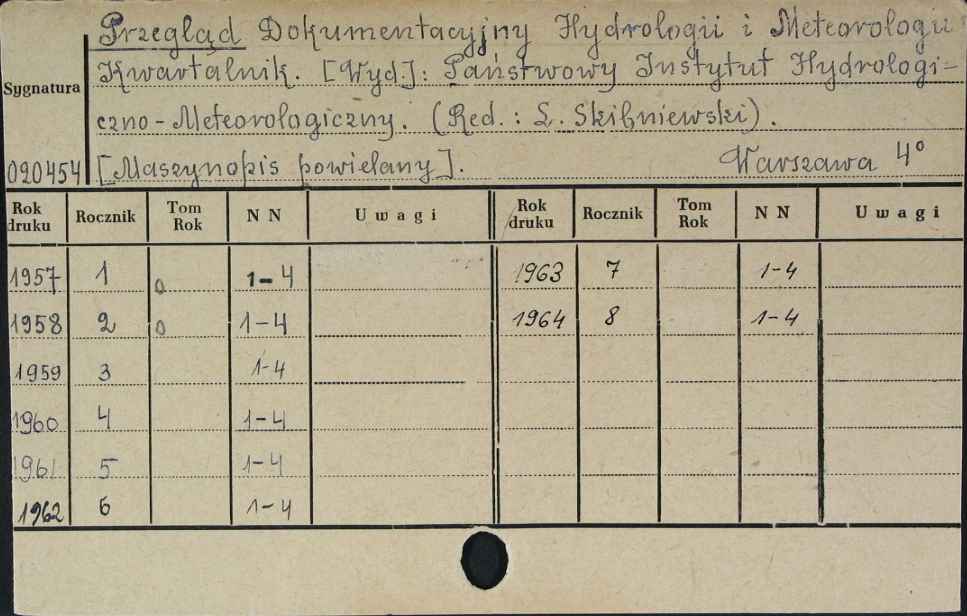 Przegląd Dokumentacyjny Hydrologii i Meteorologii
Kwartalnik. [Wyd.]: Państwowy Instytut Hydrologi-
Sygnatura
czno-Meteorologiczny. (Red.: L. Skibniewski).
020454 [Maszynopis powielany]. Warszawa 4°
Rok druku Rocznik Tom Rok N N Uwagi Rok druku Rocznik Tom Rok N N Uwagi
1957 1 0 1-4 1963 7 1-4
1958 2 0 1-4 1964 8 1-4
1959 3 1-4
1960 4 1-4
1961 5 1-4
1962 6 1-4